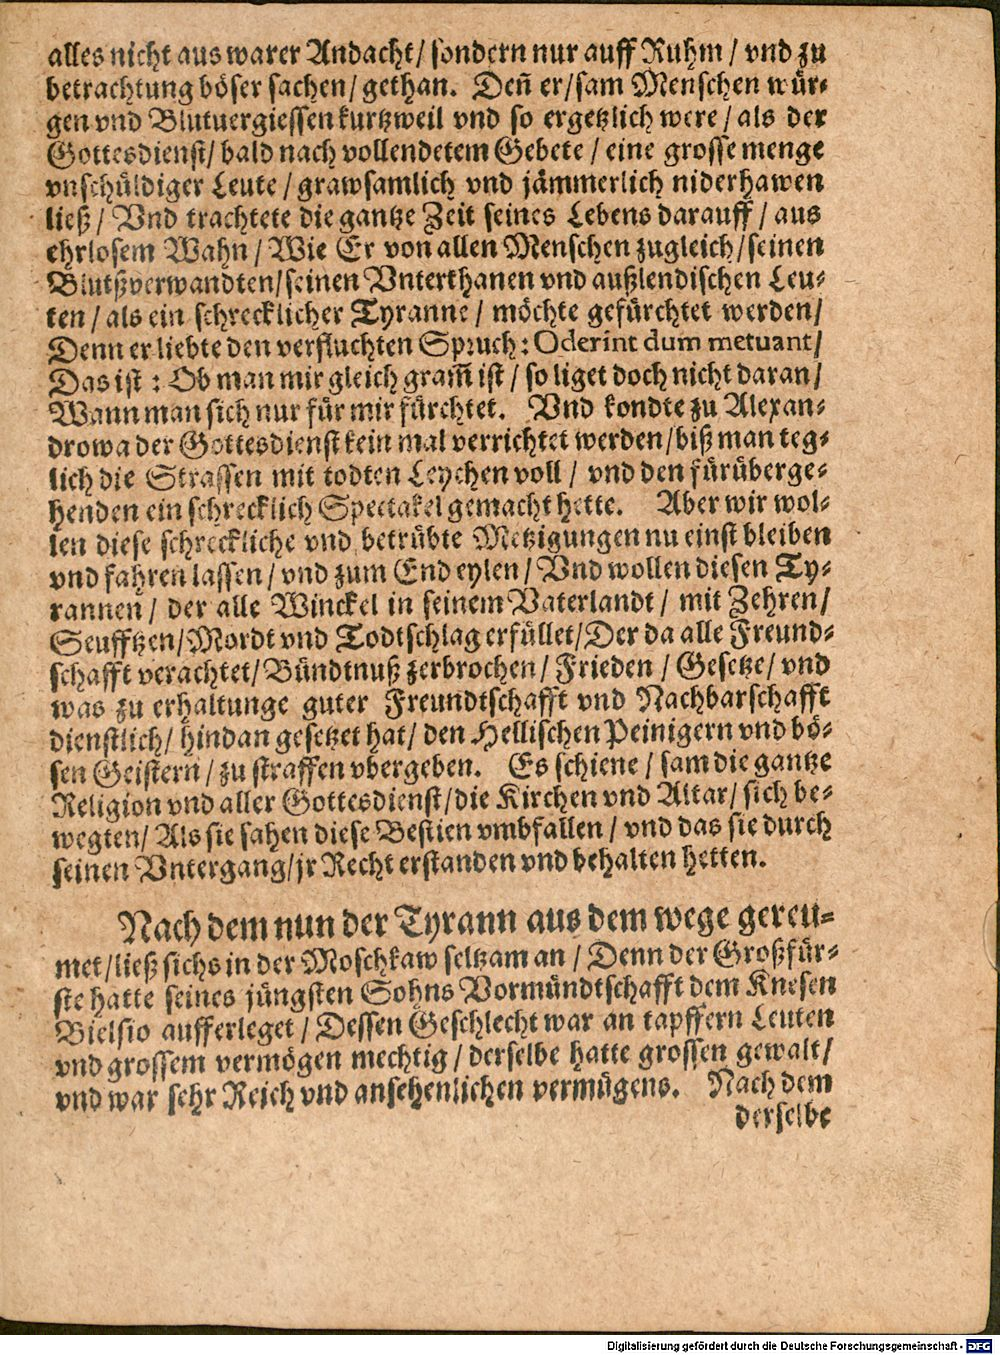 alles nicht aus warer Andacht/ sondern nur auff Ruhm / vnd zu
betrachtung böser sachen/ gethan. Deñ er/sam Menschen wür-
gen vnd Blutuergiessen kurtzweil vnd so ergetzlich were/ als der
Gottesdienst/ bald nach vollendetem Gebete / eine grosse menge
vnschüldiger Leute / grawsamlich vnd jämmerlich niderhawen
ließ / Vnd trachtete die gantze Zeit seines Lebens darauff / aus
ehrlosem Wahn / Wie Er von allen Menschen zugleich/seinen
Blutßverwandten/seinen Vnterthanen vnd außlendischen Leu-
ten / als ein schrecklicher Tyranne / möchte gefürchtet werden/
Denn er liebte den verfluchten Spruch: Oderint dum metuant/
Das ist : Ob man mir gleich gram̃ ist / so liget doch nicht daran/
Wann man sich nur für mir fürchtet. Vnd kondte zu Alexan-
drowa der Gottesdienst kein mal verrichtet werden/biß man teg-
lich die Strassen mit todten Leychen voll / vnd den fürüberge-
henden ein schrecklich Spectakel gemacht hette. Aber wir wol-
len diese schreckliche vnd betrübte Metzigungen nu einst bleiben
vnd fahren lassen/ vnd zum End eylen/ Vnd wollen diesen Ty-
rannen/ der alle Winckel in seinem Vaterlandt / mit Zehren/
Seufftzen/Mordt vnd Todtschlag erfüllet/Der da alle Freund-
schafft verachtet/ Bündtnuß zerbrochen/ Frieden / Gesetze/ vnd
was zu erhaltunge guter Freundtschafft vnd Nachbarschafft
dienstlich/ hindan gesetzet hat/ den Hellischen Peinigern vnd bö-
sen Geistern / zu straffen vbergeben. Es schiene / sam die gantze
Religion vnd aller Gottesdienst/die Kirchen vnd Altar/ sich be-
wegten/ Als sie sahen diese Bestien vmbfallen / vnd das sie durch
seinen Vntergang/jr Recht erstanden vnd behalten hetten.
Nach dem nun der Tyrann aus dem wege gereu-
met/ließ sichs in der Moschkaw seltzam an / Denn der Großfür-
ste hatte seines jüngsten Sohns Vormündtschafft dem Knesen
Bielsio aufferleget / Dessen Geschlecht war an tapffern Leuten
vnd grossem vermögen mechtig / derselbe hatte grossen gewalt/
vnd war sehr Reich vnd ansehenlichen vermügens. Nach dem
derselbe
Digitalisierung gefördert durch die Deutsche Forschungsgemeinschaft - DFG